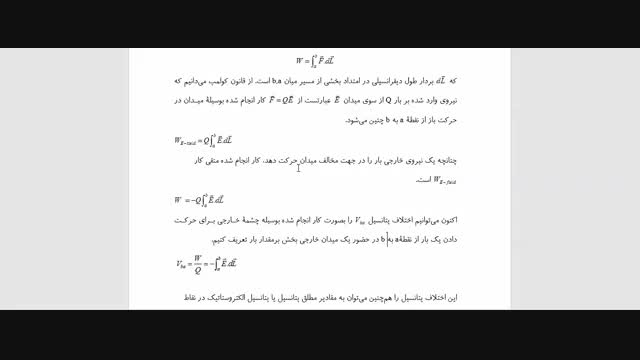 W = ∫ₐᵇ F⃗.dL⃗
که dL⃗ بردار طول دیفرانسیلی در امتداد بخشی از مسیر میان b،a است. از قانون کولمب می‌دانیم که
نیروی وارد شده بر بار Q از سوی میدان E⃗ عبارتست از F⃗ = QE⃗ کار انجام شده بوسیلهٔ میدان در
حرکت باز از نقطهٔ a به b چنین می‌شود.
W_{E-field} = Q∫ₐᵇ E⃗.dL⃗
چنانچه یک نیروی خارجی بار را در جهت مخالف میدان حرکت دهد، کار انجام شده منفی کار
W_{E-field} است.
W = -Q∫ₐᵇ E⃗.dL⃗
اکنون می‌توانیم اختلاف پتانسیل V_{ba} را بصورت کار انجام شده بوسیله چشمهٔ خارجی برای حرکت
دادن یک بار از نقطهٔ a به b در حضور یک میدان خارجی بخش برمقدار بار تعریف کنیم.
V_{ba} = W/Q = -∫ₐᵇ E⃗.dL⃗
این اختلاف پتانسیل را هم‌چنین می‌توان به مقادیر مطلق پتانسیل یا پتانسیل الکتروستاتیک در نقاط